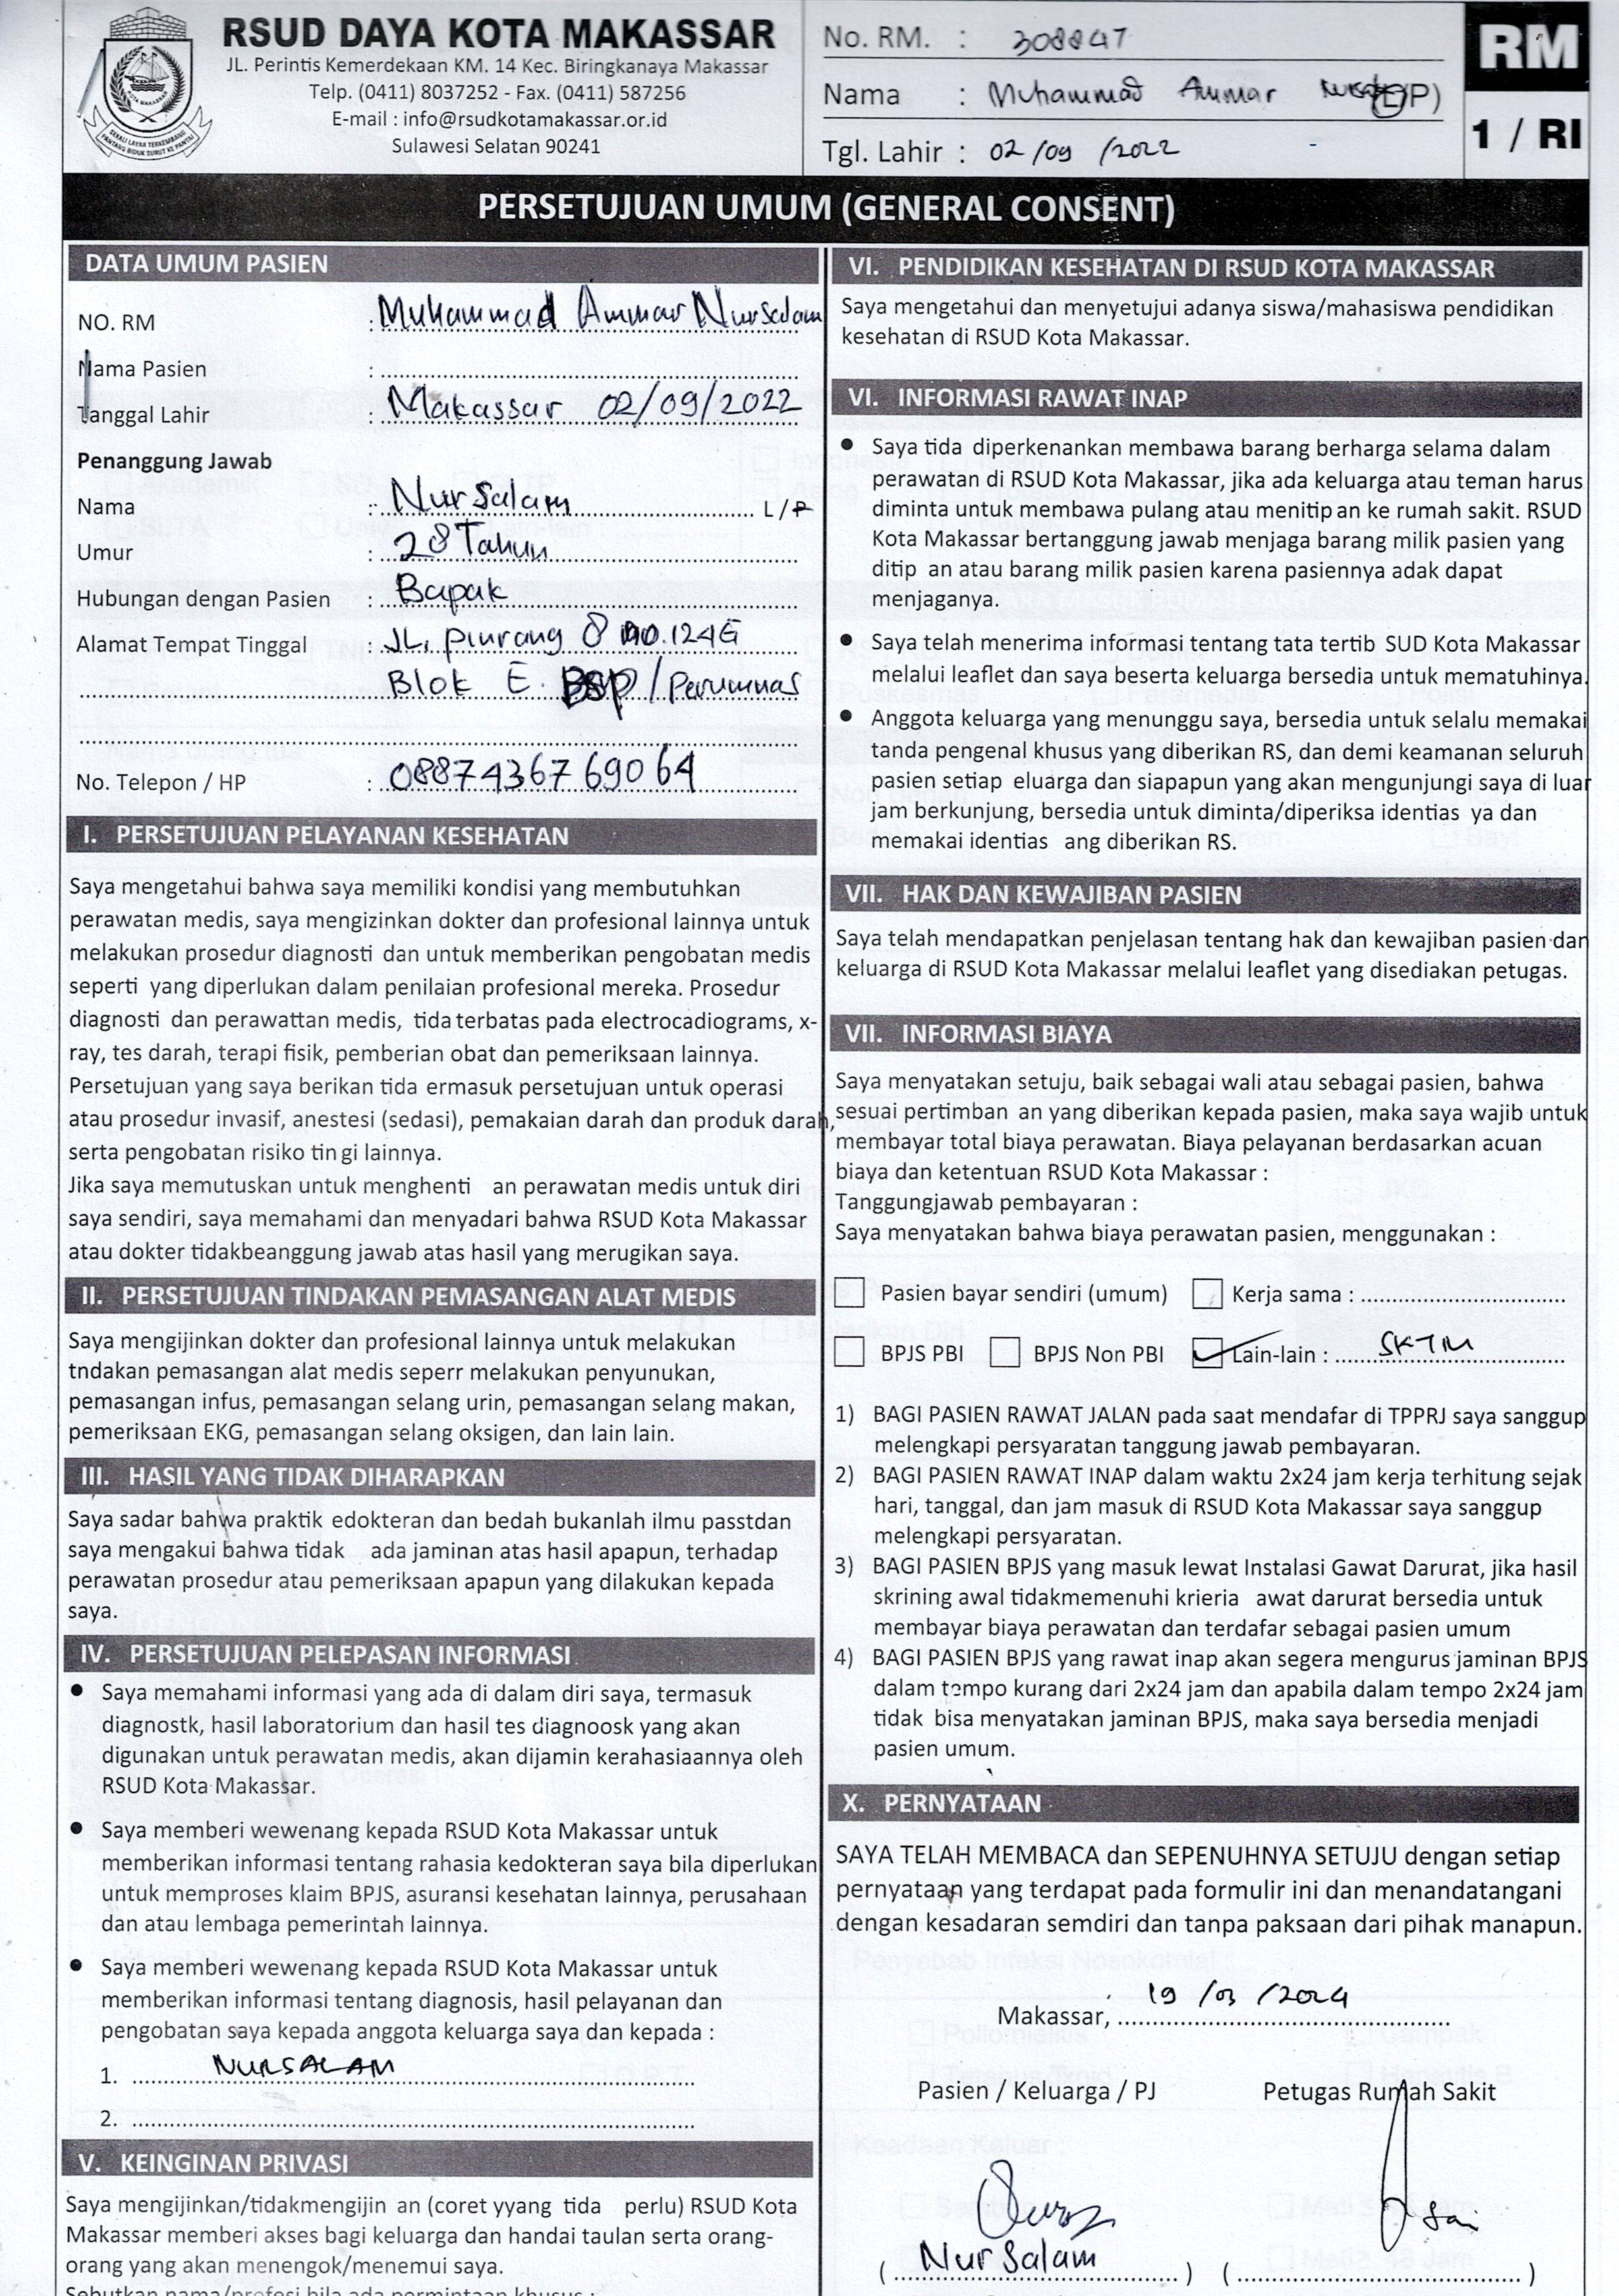 RSUD DAYA KOTA MAKASSAR
JL. Perintis Kemerdekaan KM. 14 Kec. Biringkanaya Makassar
Telp. (0411) 8037252 - Fax. (0411) 587256
E-mail : info@rsudkotamakassar.or.id
Sulawesi Selatan 90241
No. RM. : 308847
Nama : Muhammad Ammar (L/P)
Tgl. Lahir : 02/09/2022
RM
1 / RI
PERSETUJUAN UMUM (GENERAL CONSENT)
DATA UMUM PASIEN
NO. RM : Muhammad Ammar Nursalam
Nama Pasien :
Tanggal Lahir : Makassar 02/09/2022
Penanggung Jawab
Nama : Nursalam L/P
Umur : 28 Tahun
Hubungan dengan Pasien : Bapak
Alamat Tempat Tinggal : JL. pinrang 8 no.124E
Blok E. BSP/Perumnas
No. Telepon / HP : 0887436769064
I. PERSETUJUAN PELAYANAN KESEHATAN
Saya mengetahui bahwa saya memiliki kondisi yang membutuhkan
perawatan medis, saya mengizinkan dokter dan profesional lainnya untuk
melakukan prosedur diagnosti dan untuk memberikan pengobatan medis
seperti yang diperlukan dalam penilaian profesional mereka. Prosedur
diagnosti dan perawattan medis, tida terbatas pada electrocadiograms, x-
ray, tes darah, terapi fisik, pemberian obat dan pemeriksaan lainnya.
Persetujuan yang saya berikan tida ermasuk persetujuan untuk operasi
atau prosedur invasif, anestesi (sedasi), pemakaian darah dan produk darah,
serta pengobatan risiko tin gi lainnya.
Jika saya memutuskan untuk menghenti an perawatan medis untuk diri
saya sendiri, saya memahami dan menyadari bahwa RSUD Kota Makassar
atau dokter tidakbeanggung jawab atas hasil yang merugikan saya.
II. PERSETUJUAN TINDAKAN PEMASANGAN ALAT MEDIS
Saya mengijinkan dokter dan profesional lainnya untuk melakukan
tndakan pemasangan alat medis seperr melakukan penyunukan,
pemasangan infus, pemasangan selang urin, pemasangan selang makan,
pemeriksaan EKG, pemasangan selang oksigen, dan lain lain.
III. HASIL YANG TIDAK DIHARAPKAN
Saya sadar bahwa praktik edokteran dan bedah bukanlah ilmu passtdan
saya mengakui bahwa tidak ada jaminan atas hasil apapun, terhadap
perawatan prosedur atau pemeriksaan apapun yang dilakukan kepada
saya.
IV. PERSETUJUAN PELEPASAN INFORMASI
● Saya memahami informasi yang ada di dalam diri saya, termasuk
diagnostk, hasil laboratorium dan hasil tes diagnoosk yang akan
digunakan untuk perawatan medis, akan dijamin kerahasiaannya oleh
RSUD Kota Makassar.
● Saya memberi wewenang kepada RSUD Kota Makassar untuk
memberikan informasi tentang rahasia kedokteran saya bila diperlukan
untuk memproses klaim BPJS, asuransi kesehatan lainnya, perusahaan
dan atau lembaga pemerintah lainnya.
● Saya memberi wewenang kepada RSUD Kota Makassar untuk
memberikan informasi tentang diagnosis, hasil pelayanan dan
pengobatan saya kepada anggota keluarga saya dan kepada :
1. NURSALAM
2.
V. KEINGINAN PRIVASI
Saya mengijinkan/tidakmengijin an (coret yyang tida perlu) RSUD Kota
Makassar memberi akses bagi keluarga dan handai taulan serta orang-
orang yang akan menengok/menemui saya.
Sebutkan nama/profesi bila ada permintaan khusus :
VI. PENDIDIKAN KESEHATAN DI RSUD KOTA MAKASSAR
Saya mengetahui dan menyetujui adanya siswa/mahasiswa pendidikan
kesehatan di RSUD Kota Makassar.
VI. INFORMASI RAWAT INAP
● Saya tida diperkenankan membawa barang berharga selama dalam
perawatan di RSUD Kota Makassar, jika ada keluarga atau teman harus
diminta untuk membawa pulang atau menitip an ke rumah sakit. RSUD
Kota Makassar bertanggung jawab menjaga barang milik pasien yang
ditip an atau barang milik pasien karena pasiennya adak dapat
menjaganya.
● Saya telah menerima informasi tentang tata tertib SUD Kota Makassar
melalui leaflet dan saya beserta keluarga bersedia untuk mematuhinya.
● Anggota keluarga yang menunggu saya, bersedia untuk selalu memakai
tanda pengenal khusus yang diberikan RS, dan demi keamanan seluruh
pasien setiap eluarga dan siapapun yang akan mengunjungi saya di luar
jam berkunjung, bersedia untuk diminta/diperiksa identias ya dan
memakai identias ang diberikan RS.
VII. HAK DAN KEWAJIBAN PASIEN
Saya telah mendapatkan penjelasan tentang hak dan kewajiban pasien dan
keluarga di RSUD Kota Makassar melalui leaflet yang disediakan petugas.
VII. INFORMASI BIAYA
Saya menyatakan setuju, baik sebagai wali atau sebagai pasien, bahwa
sesuai pertimban an yang diberikan kepada pasien, maka saya wajib untuk
membayar total biaya perawatan. Biaya pelayanan berdasarkan acuan
biaya dan ketentuan RSUD Kota Makassar :
Tanggungjawab pembayaran :
Saya menyatakan bahwa biaya perawatan pasien, menggunakan :
Pasien bayar sendiri (umum) Kerja sama :
BPJS PBI BPJS Non PBI Lain-lain : SKTM
1) BAGI PASIEN RAWAT JALAN pada saat mendafar di TPPRJ saya sanggup
melengkapi persyaratan tanggung jawab pembayaran.
2) BAGI PASIEN RAWAT INAP dalam waktu 2x24 jam kerja terhitung sejak
hari, tanggal, dan jam masuk di RSUD Kota Makassar saya sanggup
melengkapi persyaratan.
3) BAGI PASIEN BPJS yang masuk lewat Instalasi Gawat Darurat, jika hasil
skrining awal tidakmemenuhi krieria awat darurat bersedia untuk
membayar biaya perawatan dan terdafar sebagai pasien umum
4) BAGI PASIEN BPJS yang rawat inap akan segera mengurus jaminan BPJS
dalam tempo kurang dari 2x24 jam dan apabila dalam tempo 2x24 jam
tidak bisa menyatakan jaminan BPJS, maka saya bersedia menjadi
pasien umum.
X. PERNYATAAN
SAYA TELAH MEMBACA dan SEPENUHNYA SETUJU dengan setiap
pernyataan yang terdapat pada formulir ini dan menandatangani
dengan kesadaran semdiri dan tanpa paksaan dari pihak manapun.
Makassar, 19/03/2024
Pasien / Keluarga / PJ Petugas Rumah Sakit
( Nursalam ) ( )